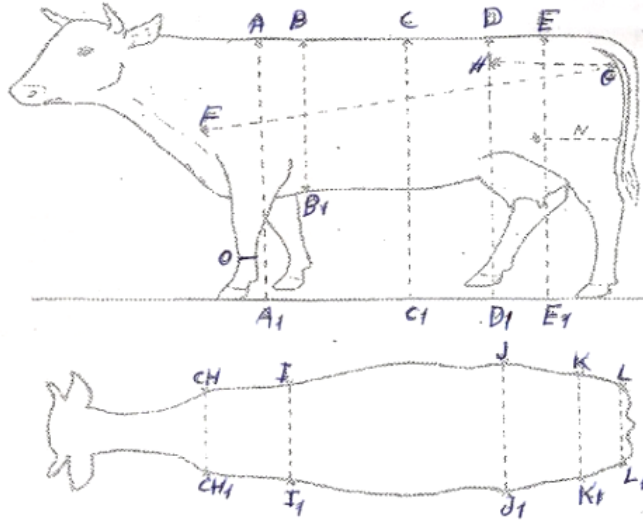 A B C D E
H G
F
N
B1
O
A1 C1 D1 E1
CH I J K L
CH1 I1 J1 K1 L1